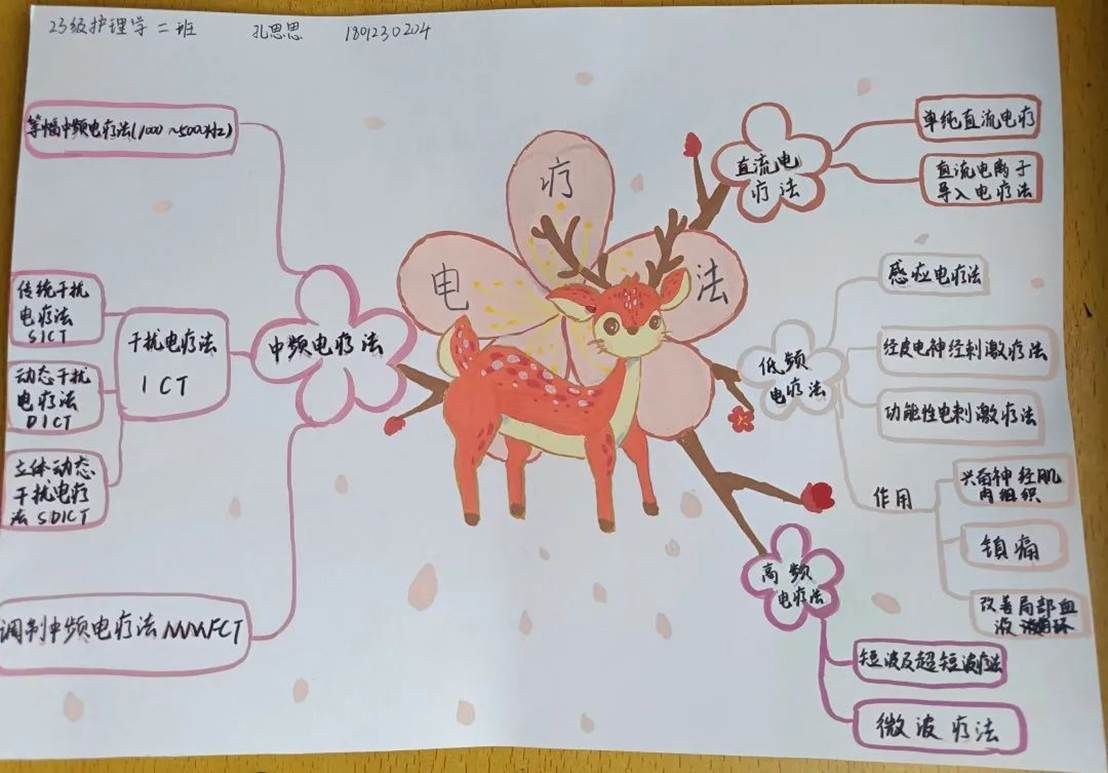 23级护理学二班 孔思思 1809230204
电疗法
等幅中频电疗法(1000~5000Hz)
传统干扰
电疗法
SICT
动态干扰
电疗法
DICT
立体动态
干扰电疗
法SDICT
干扰电疗法
ICT
中频电疗法
调制中频电疗法MMFCT
直流电
疗法
单纯直流电疗
直流电离子
导入电疗法
低频
电疗法
感应电疗法
经皮电神经刺激疗法
功能性电刺激疗法
作用
兴奋神经肌
肉组织
镇痛
改善局部血
液循环
高频
电疗法
短波及超短波疗法
微波疗法